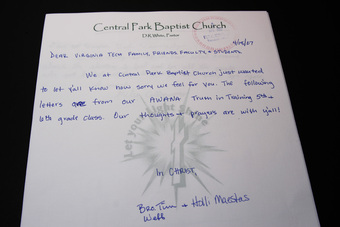 Central Park Baptist Church
D R White, Pastor
9/18/07
Dear Virginia Tech Family, Friends, Faculty + Students
We at Central Park Baptist Church just wanted
to let y'all know how sorry we feel for you. The following
letters are from our AWANA Truth in Training 5th +
6th grade class. Our thoughts + prayers are with y'all
Let your light
In Christ,
Bro Tim + Holli Maestas
Webb